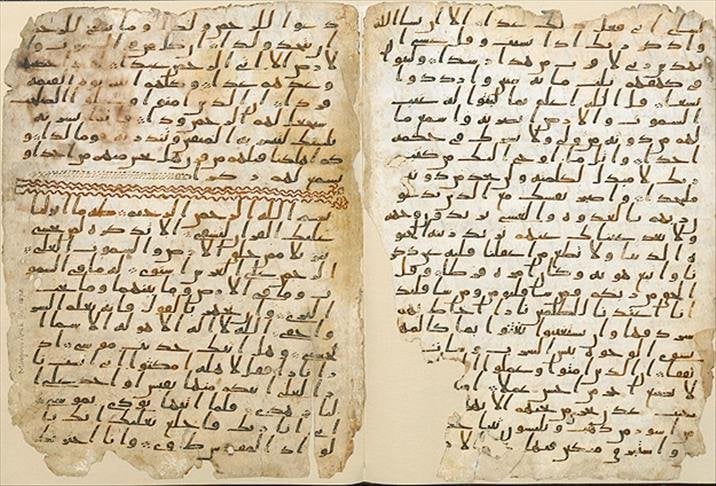 لشاى انى فعل ذلك غدا الا ان يشا الله
واذكر ربك اذا نسيت وقل عسى ا
ن يهدين ربى لاقرب من هذا رشدا ولبثوا
فى كهفهم ثلث مائة سنين وازدادوا
تسعا قل الله اعلم بما لبثوا له غيب
السموت والارض ابصر به واسمع ما
لهم من دونه من ولى ولا يشرك فى حكمه
احدا واتل ما اوحى اليك من كتب
ربك لا مبدل لكلمته ولن تجد من دونه
ملتحدا واصبر نفسك مع الذين يدعو
ن ربهم بالغدوة والعشى يريدون وجهه
ولا تعد عينك عنهم تريد زينة الحيو
ة الدنيا ولا تطع من اغفلنا قلبه عن ذكر
نا واتبع هويه وكان امره فرطا وقل
الحق من ربكم فمن شا فليومن ومن شا فليكفر
انا اعتدنا للظلمين نارا احاط بهم
سرادقها وان يستغيثوا يغثوا بما كالمهل
يشوى الوجوه بئس الشراب وسات
تفقا ان الذين امنوا وعملوا
لا نضيع اجر من احسن عملا
تجرى من تحتهم الانهر
من اسور من ذهب ويلبسون ثيابا
واستبرق متكين فيها
دعوا للرحمن ولدا وما ينبغى للرحمن
ان يتخذ ولدا ان كل من فى السموت وا
لارض الا اتى الرحمن عبدا لقد احصيهم
وعدهم عدا وكلهم اتيه يوم القيمة
فردا ان الذين امنوا وعملوا الصلحت
سيجعل لهم الرحمن ودا فانما يسرنه
بلسنك لتبشر به المتقين وتنذر به قوما لدا و
كم اهلكنا قبلهم من قرن هل تحس منهم من احد او
تسمع لهم ركزا
بسم الله الرحمن الرحيم طه ما انزلنا
عليك القران لتشقى الا تذكرة لمن يخشى
تنزيلا ممن خلق الارض والسموت العلى
الرحمن على العرش استوى له ما فى السمو
ت وما فى الارض وما بينهما وما تحت
الثرى وان تجهر بالقول فانه يعلم السر
واخفى الله لا اله الا هو له الاسما
الحسنى وهل اتيك حديث موسى اذ
را نارا فقال لاهله امكثوا انى انست نا
را لعلى اتيكم منها بقبس او اجد على ا
لنار هدى فلما اتيها نودى يموسى
انى انا ربك فاخلع نعليك انك با
لواد المقدس طوى وانا اخترتك